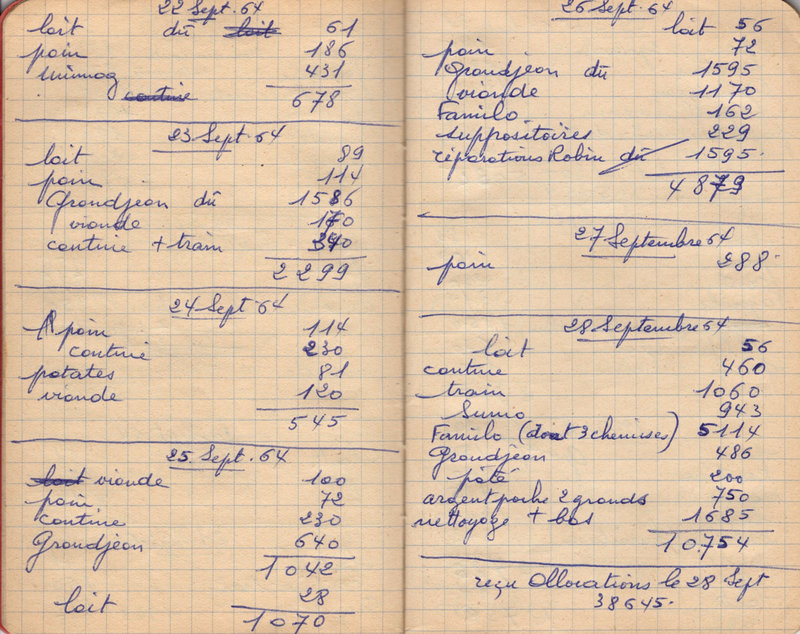 22 Sept. 64
lait dû lait 61
pain 186
unimag 431
cantine
678
23 Sept. 64
lait 89
pain 114
Grandjean dû 1586
viande 170
cantine + train 340
2299
24 Sept 64
pain 114
cantine 230
patates 81
viande 120
545
25. Sept. 64
lait viande 100
pain 72
cantine 230
Grandjean 640
1042
lait 28
1070
26 Sept. 64
lait 56
pain 72
Grandjean dû 1595
viande 1170
Familo 162
suppositoires 229
réparations Robin dû 1595.
4879
27 Septembre 64
pain 288.
28 Septembre 64
lait 56
cantine 460
train 1060
Sumo 943
Familo (dont 3 chemises) 5114
Grandjean 486
pâté 200
argent poche 2 grands 750
nettoyage + bas 1685
10.754
reçu Allocations le 28 Sept
38645.